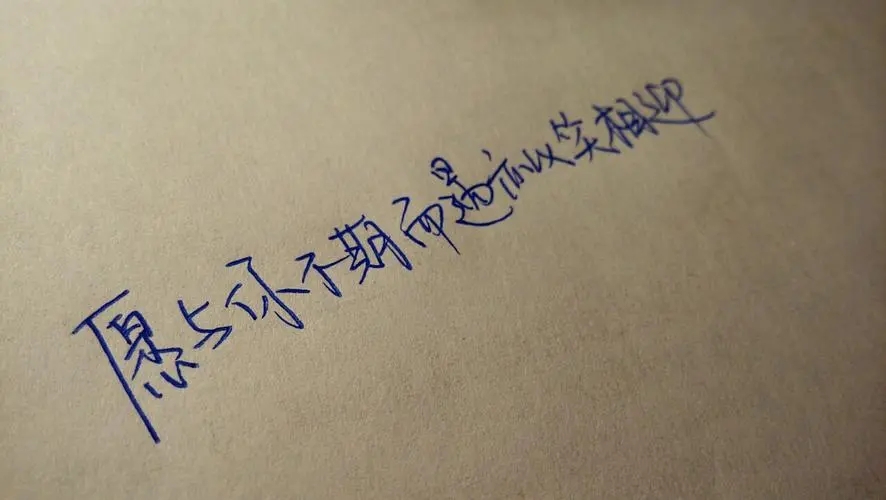 愿与你不期而遇,亦以笑相迎